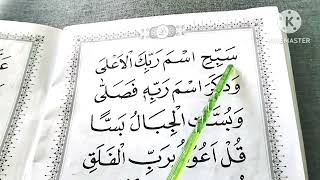 سَبِّحِ اسْمَ رَبِّكَ الْاَعْلَى
وَذَكَرَ اسْمَ رَبِّهٖ فَصَلّٰى
وَبُسَّتِ الْجِبَالُ بَسًّا
قُلْ اَعُوْذُ بِرَبِّ الْفَلَقِ
K